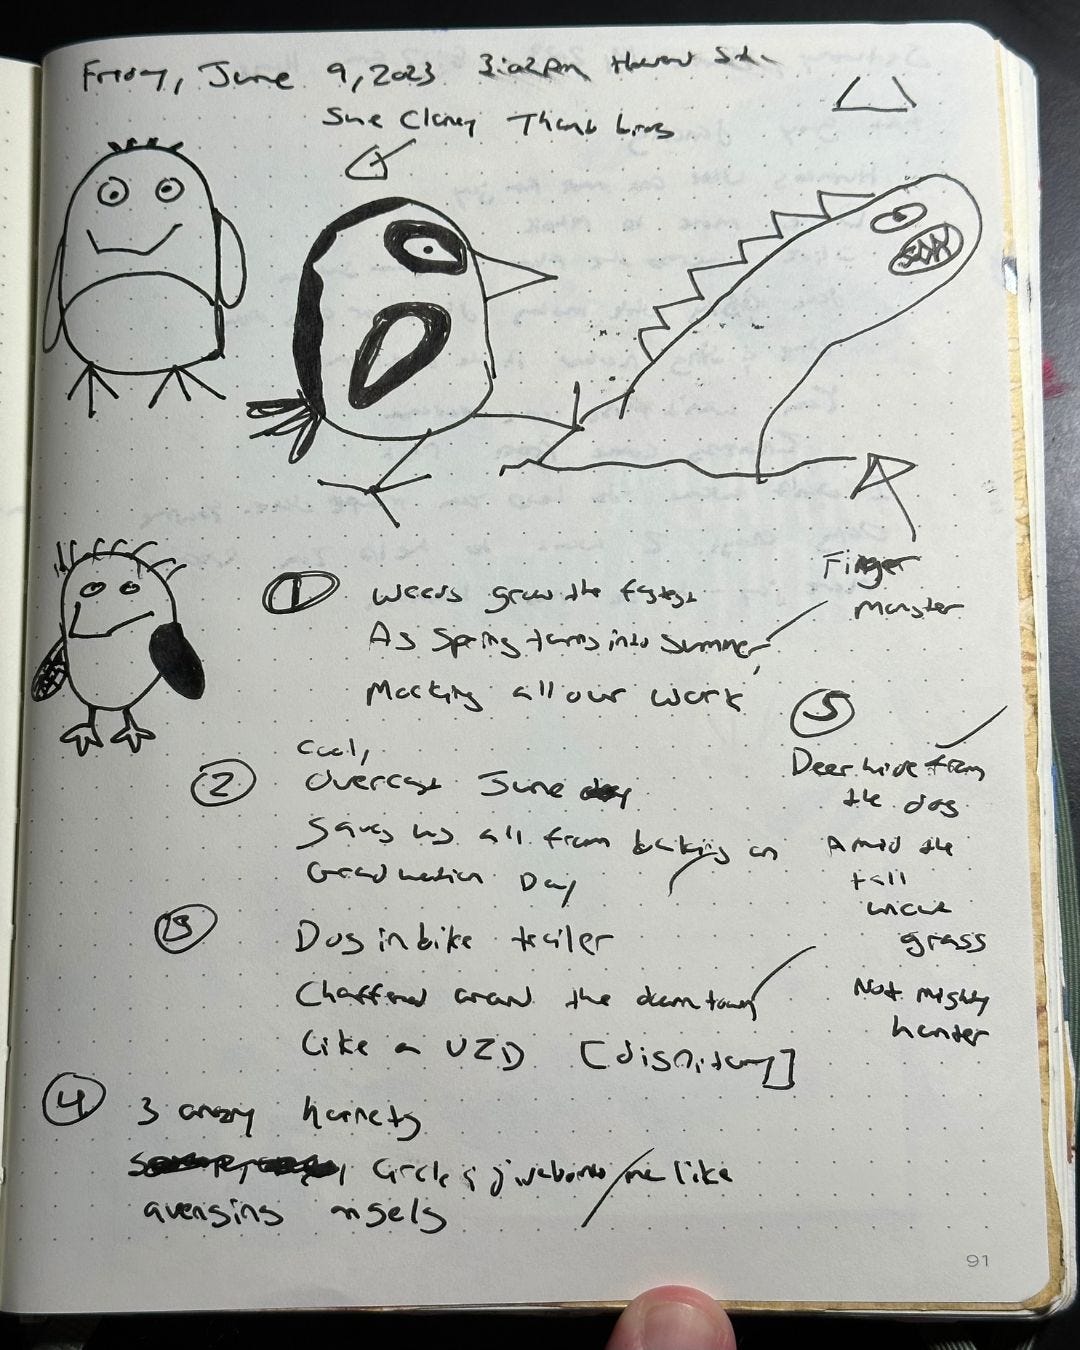 Friday, June 9, 2023 3:02pm
Sue Clancy Thumb birds
Finger
monster
1 Weeds grow the fastest
As Spring turns into summer,
Mocking all our work
2 Cool,
Overcast June day
Saves us all from baking on
Graduation Day
3 Dog in bike trailer
Chaffered around the downtown
Like a VIP [dignitary]
4 3 angry hornets
Circle & divebomb me like
avenging angels
5
Deer hide from
the dog
Amid the
tall
grass
Not mighty
hunter
91